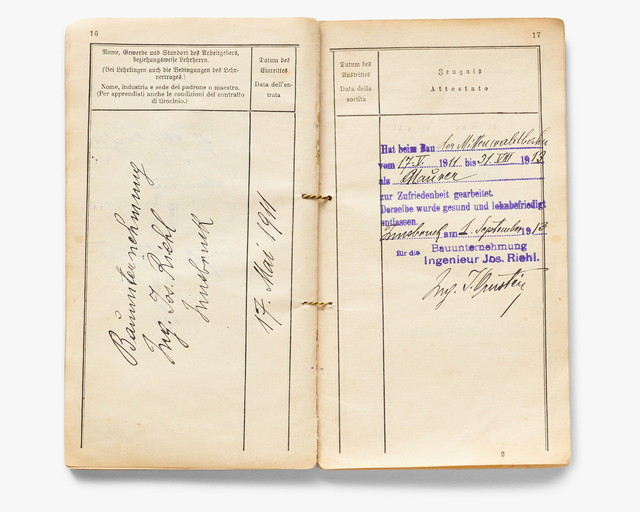 16
Name, Gewerbe und Standort des Arbeitgebers,
beziehungsweise Lehrherrn.
(Bei Lehrlingen auch die Bedingungen des Lehr-
vertrages.)
Nome, industria e sede del padrone o maestro.
(Per apprendisti anche le condizioni del contratto
di tirocinio.)
Datum des
Eintrittes
Data dell'en-
trata
Bauunternehmung
Ing. Jos. Riehl
Innsbruck
17. Mai 1911
17
Datum des
Austrittes
Data della
sortita
Zeugnis
Attestato
Hat beim Bau der Mittenwaldbahn
vom 17.V. 1911 bis 31.VIII 1913
als Maurer
zur Zufriedenheit gearbeitet.
Derselbe wurde gesund und lohnbefriedigt
entlassen.
Innsbruck am 1. September 1913
für die Bauunternehmung
Ingenieur Jos. Riehl.
Ing. J.
2